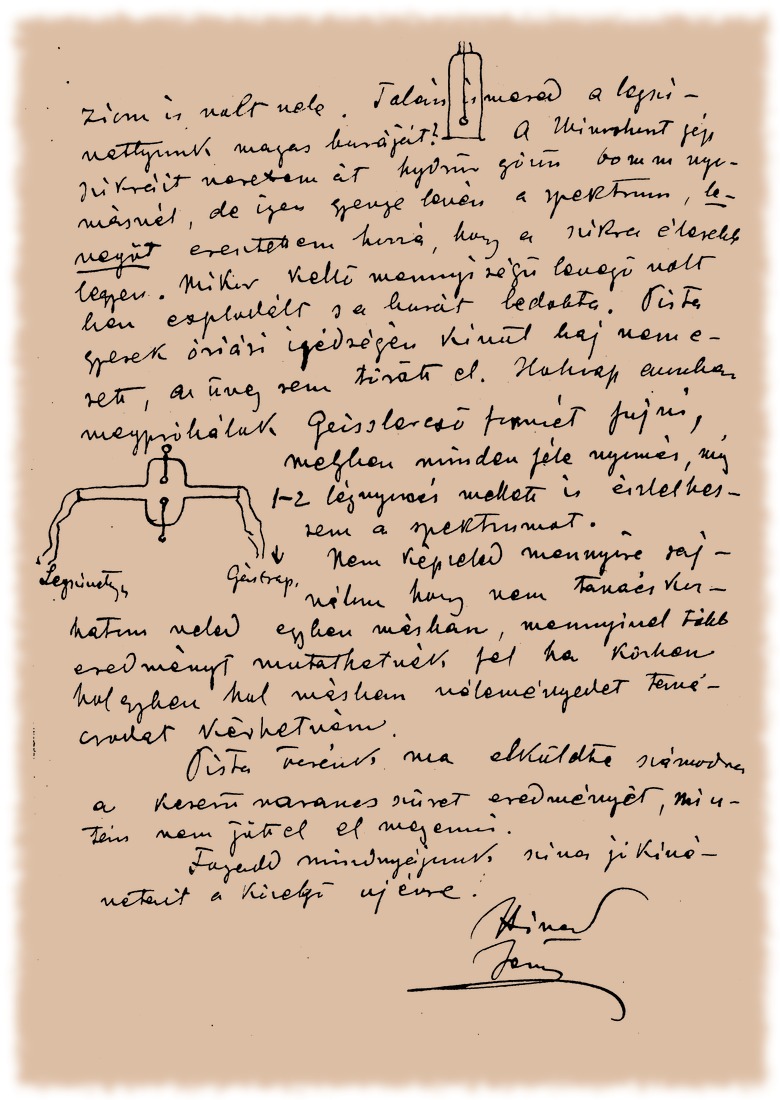 zion is volt vele. Talán ismered a légszi-
vattyunk magas buráját? A Wimshurst gép
szikráit vezettem át hydrogén 60 m.m nyo-
másnál, de igen gyenge lévén a spektrum, le-
vegőt eresztettem hozzá, hogy a szikra élesebb
legyen. Mikor kellő mennyiségű levegő volt
ben explodált s a burát ledobta. Pista
gyerek óriási ijedségén kívül baj nem e-
sett, az üveg sem törött el. Holnap azonban
megpróbálok Geisslercső formát fujni,
melyben minden féle nyomás, míg
1-2 légnyomás mellett is észlelhes-
sem a spektrumot.
Légszivattyu
Gázkap.
Nem képzeled mennyire saj-
nálom hogy nem tanácskoz-
hatom veled egyben másban, mennyivel több
eredményt mutathatnék fel ha közben
hol egyben hol másban véleményedet taná-
csodat kérhetném.
Pista öcsénk ma elküldte számodra
a narancs szüret eredményét, miu-
tán nem jöttél el megenni.
Fogadd mindnyájunk szives jókivá-
natait a küzelgő ujévre.
Híved
Jenő